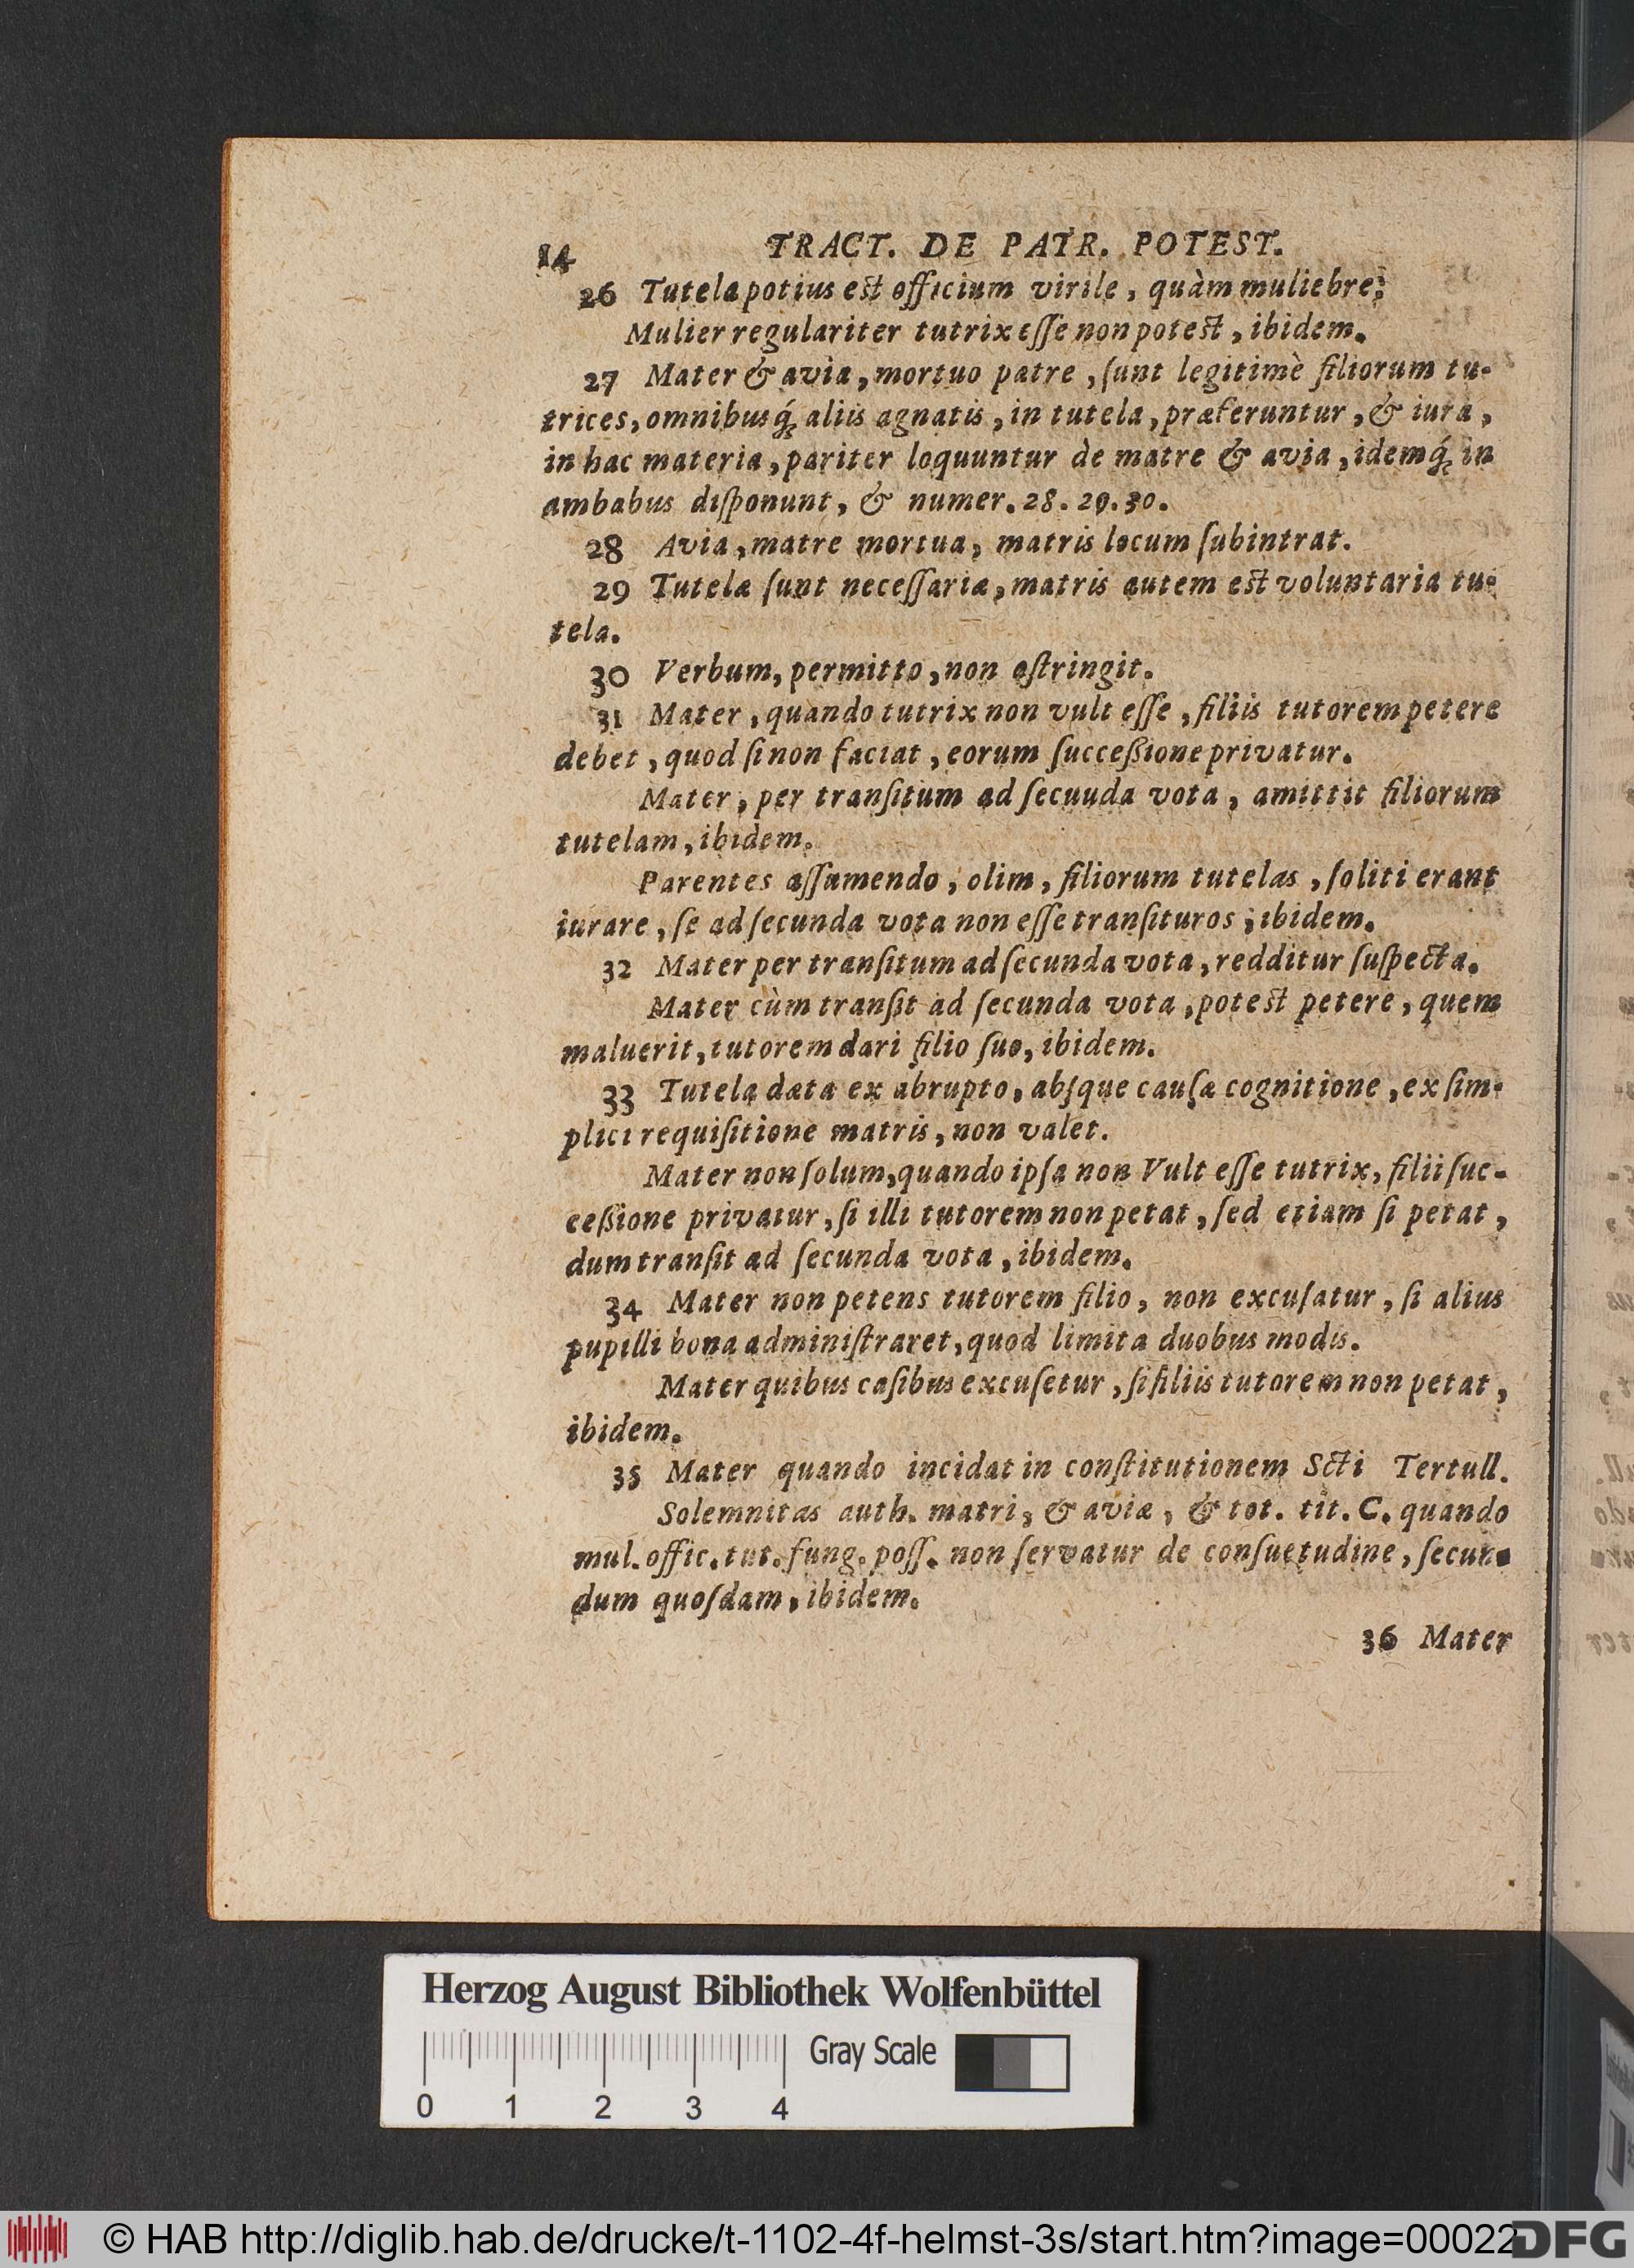 14 TRACT. DE PATR. POTEST.
26 Tutela potius est officium virile, quàm muliebre;
Mulier regulariter tutrix eſſe non potest, ibidem.
27 Mater & avia, mortuo patre, ſunt legitimè filiorum tu-
trices, omnibusq́ꝫ aliis agnatis, in tutela, præferuntur, & iura,
in hac materia, pariter loquuntur de matre & avia, idemq́ꝫ in
ambabus diſponunt, & numer. 28. 29. 30.
28 Avia, matre mortua, matris locum ſubintrat.
29 Tutelæ ſunt neceſſariæ, matris autem est voluntaria tu-
tela.
30 Verbum, permitto, non aſtringit.
31 Mater, quando tutrix non vult eſſe, filiis tutorem petere
debet, quod ſi non faciat, eorum ſucceßione privatur.
Mater, per tranſitum ad ſecuuda vota, amittit filiorum
tutelam, ibidem.
Parentes aſſumendo, olim, filiorum tutelas, ſoliti erant
iurare, ſe ad ſecunda vota non eſſe tranſituros, ibidem.
32 Mater per tranſitum ad ſecunda vota, redditur ſuſpecta.
Mater cùm tranſit ad ſecunda vota, potest petere, quem
maluerit, tutorem dari filio ſuo, ibidem.
33 Tutela data ex abrupto, abſque cauſæ cognitione, ex ſim-
plici requiſitione matris, non valet.
Mater non ſolum, quando ipſa non Vult eſſe tutrix, filii ſuc-
ceßione privatur, ſi illi tutorem non petat, ſed etiam ſi petat,
dum tranſit ad ſecunda vota, ibidem.
34 Mater non petens tutorem filio, non excuſatur, ſi alius
pupilli bona adminiſtraret, quod limita duobus modis.
Mater quibus caſibus excuſetur, ſi filiis tutorem non petat,
ibidem.
35 Mater quando incidat in conſtitutionem Scti Tertull.
Solemnitas auth. matri, & aviæ, & tot. tit. C. quando
mul. offic. tut. fung. poſſ. non ſervatur de conſuetudine, ſecun-
dum quoſdam, ibidem.
36 Mater
Herzog August Bibliothek Wolfenbüttel
Gray Scale
0 1 2 3 4
© HAB http://diglib.hab.de/drucke/t-1102-4f-helmst-3s/start.htm?image=00022
DFG